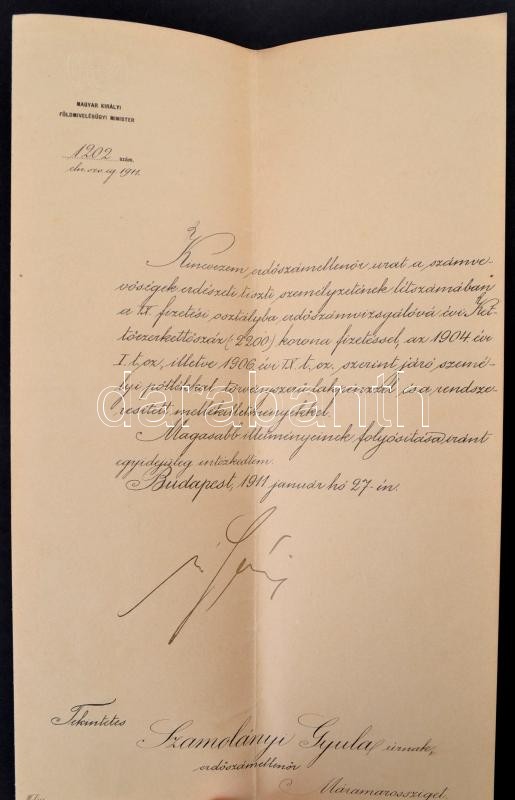 MAGYAR KIRÁLYI
FÖLDMIVELÉSÜGYI MINISTER
1202 szám.
eln. szv. ig 1911.
Kinevezem erdőszámellenőr urat a számve-
vőségek erdészeti tiszti személyzetének létszámában
a IX. fizetési osztályba erdőszámvizsgálóvá évi Ket-
tőezerkettőszáz (2200) korona fizetéssel, az 1904. évi
I. t. cz., illetve 1906. évi IX. t. cz. szerint járó szemé-
lyi pótlékkal, törvényszerű lakpénzzel és a rendsze-
resített mellékilletményekkel.
Magasabb illetményeinek folyósítása iránt
egyidejüleg intézkedtem.
Budapest, 1911 január hó 27-én.
darabanth
Tekintetes
Szamolányi Gyula úrnak,
erdőszámellenőr
Máramarossziget.